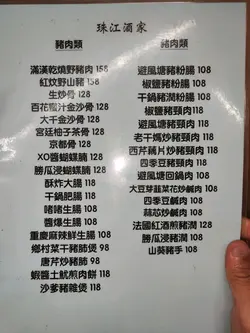 珠江酒家
豬肉類
滿漢乾燒野豬肉 158
紅炆野山豬 158
生炒骨 128
百花蜜汁金沙骨 128
大千金沙骨 128
宮廷柚子茶骨 128
京都骨 128
XO醬蝴蝶腩 128
勝瓜浸蝴蝶腩 128
酥炸大腸 118
干鍋肥腸 118
啫啫生腸 108
醬爆生腸 108
重慶麻辣鮮生腸 108
鄉村菜干豬肺煲 98
唐芹炒豬肺 98
蝦醬土魷煎肉餅 118
沙爹豬雜煲 118
豬肉類
避風塘豬粉腸 108
椒鹽豬粉腸 108
干鍋豬潤粉腸 108
椒鹽豬頸肉 118
避風塘豬頸肉 118
老干媽炒豬頸肉 118
西芹藕片炒豬頸肉 118
四季豆豬頸肉 118
避風塘回鍋肉 108
大豆芽韮菜花炒鹹肉 108
四季豆鹹肉 108
蒜芯炒鹹肉 108
法國紅酒煎豬潤 108
勝瓜浸豬潤 108
山葵豬手 108